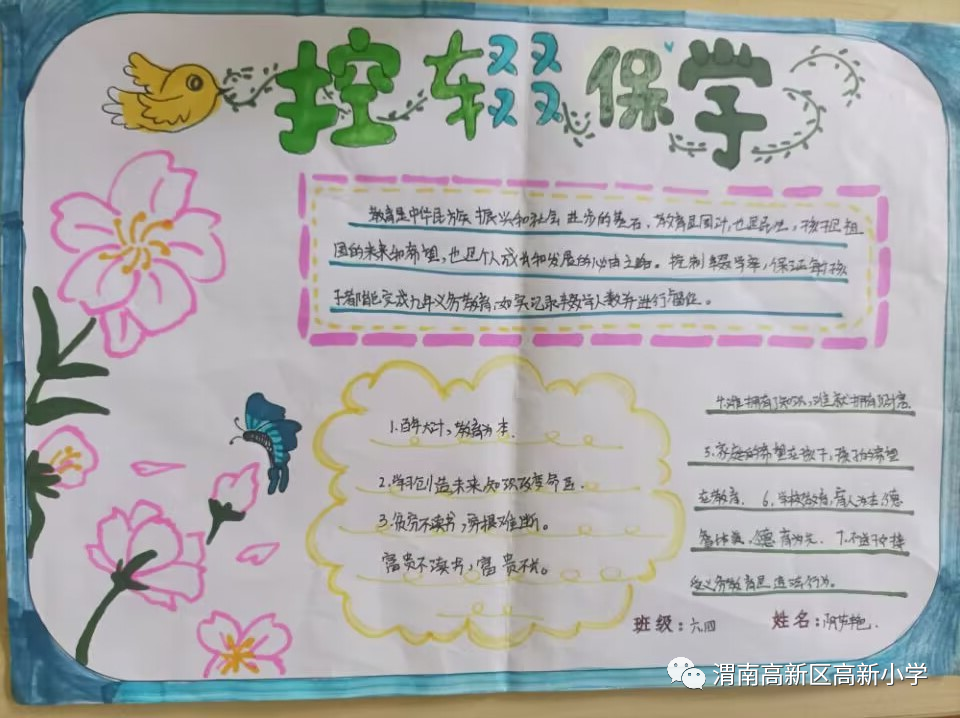 控辍保学
教育是中华民族振兴和社会进步的基石。教育是国计,也是民生,孩子是祖
国的未来和希望,也是个人成长和发展的必由之路。控制辍学率,保证每孩
子都能完成九年义务教育,如实记录辍学人数并进行
1.百年大计,教育为本.
2.学习创造未来,知识改变命运.
3.贫穷不读书,穷根难断。
富贵不读书,富贵不长。
4.谁拥有知识,谁就拥有财富.
5.家庭的希望在孩子,孩子的希望
在教育. 6.学校教育,育人为主,德
智体美,德育为先. 7.不送子女接
受义务教育是违法行为.
班级:六四 姓名:
渭南高新区高新小学